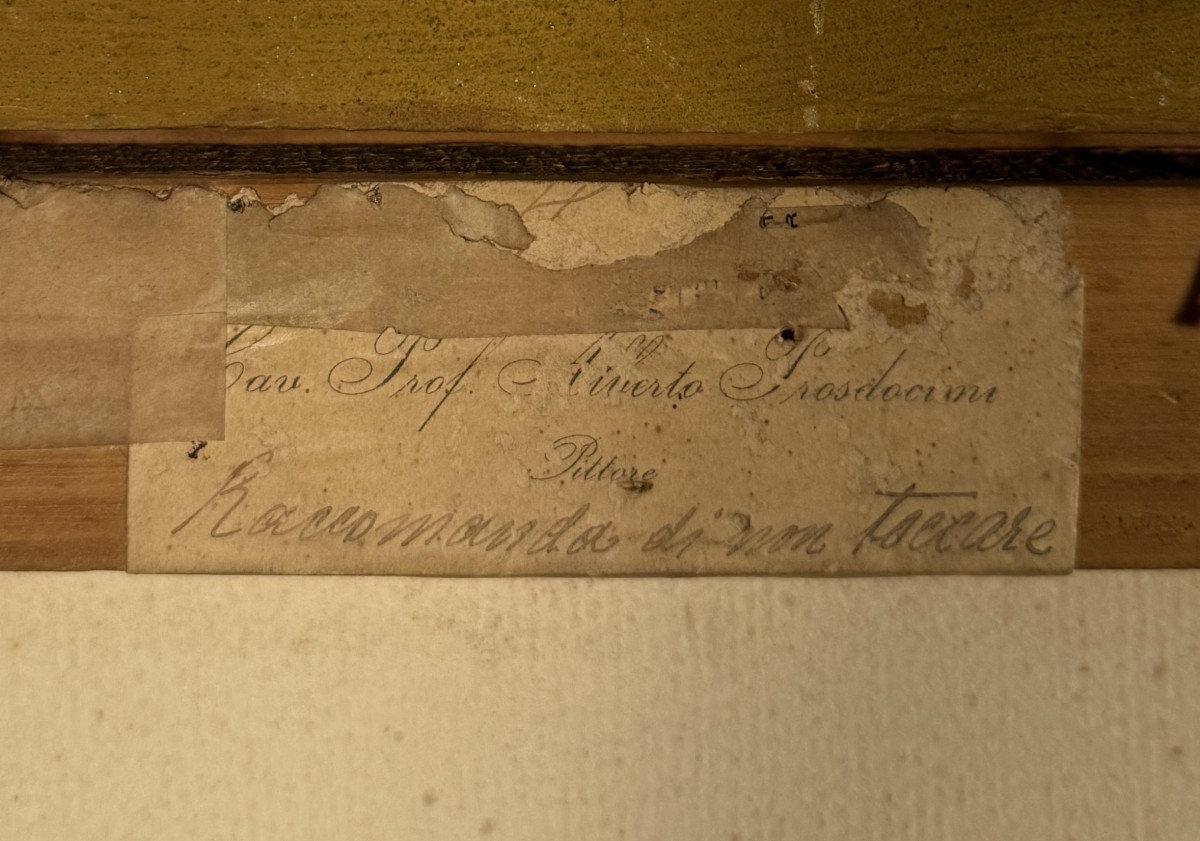 Cav. Prof. Alberto Prosdocimi
Pittore
Raccomanda di non toccare